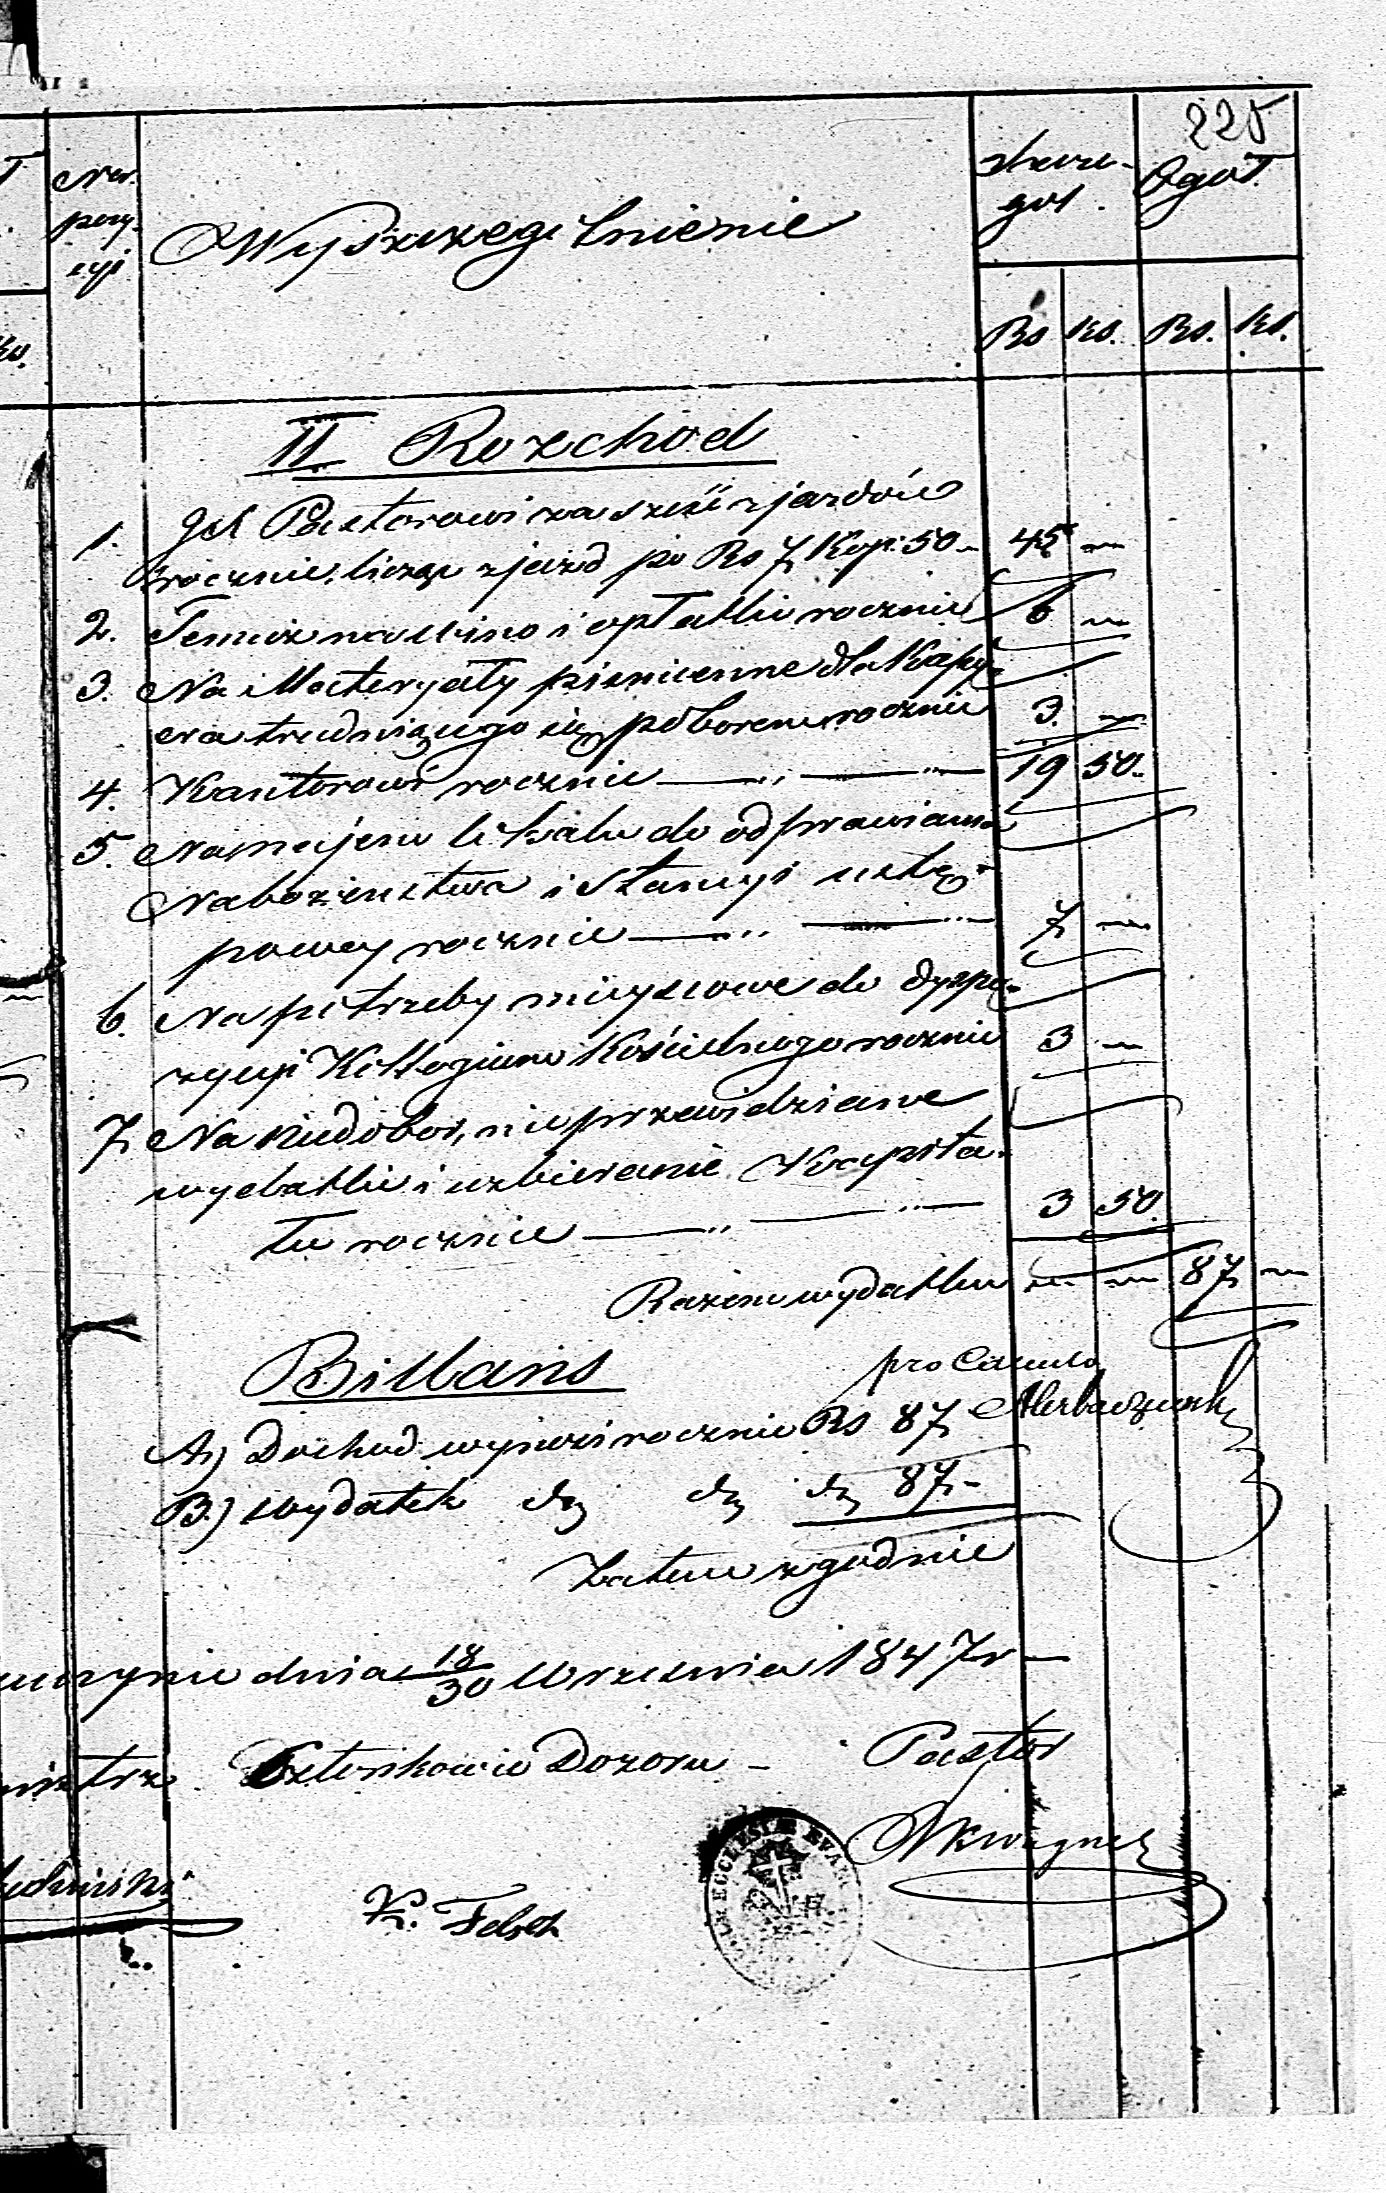 225
Nr.
pozy-
cyi
Wyszczególnienie
szcze-
gół.
Ogół.
Rs ks. Rs. ks.
II Rozchód
1. Pastorowi za sześć zjazdów
rocznie, licząc zjazd po Rs 7 Kop: 50 - 45 -
2. Temuż na wino i opłatki rocznie 6 -
3. Na Materyały piśmienne dla Kassye-
ra trudniącego się poborem rocznie 3. -
4. Kantorowi rocznie 19 50.
5. Na najem lokalu do odprawiania
Nabożeństwa i Stancyi ustę-
powey rocznie 7 -
6. Na potrzeby mieyscowe do dyspo-
zycyi Kollegium Kościelnego rocznie 3 -
7. Na niedobor, nieprzewidziane
wydatki i uzbieranie Kapita-
łu rocznie 3 50.
Razem wydatku - - 87 -
Billans
pro Calculo
A) Dochod wynosi rocznie Rs 87
B.) Wydatek d° d° d° 87 -
Zatem zgodnie
dnia 18/30 Września 1847 r
Członkowie Dozoru - Pastor
K. Felsch
ECCLESIAE EVAN